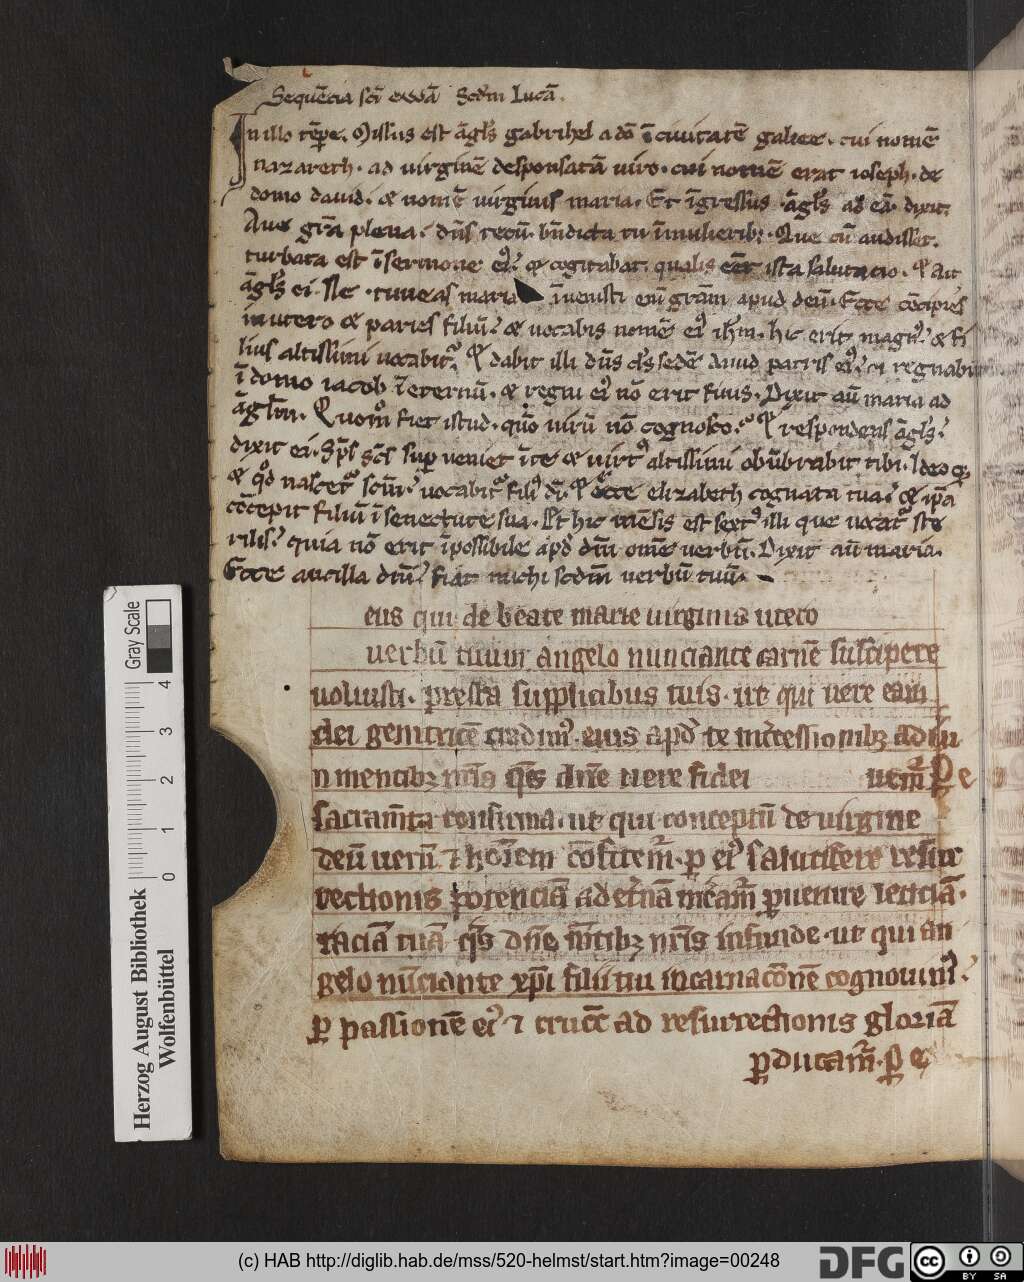 Sequēcia scī ewā Scdm Lucā.
In illo tēpe. Missus est āgls gabrihel a dō ī ciuitatē galiee. cui nomē
nazareth. ad uirginē desponsatā uiro. cui nomē erat ioseph. de
domo dauid. & nomē uirginis maria. Et īgressus āgls ad eā. dixit.
Aue grā plena. dns tecū. bndicta tu ī mulieribꝫ. Que cū audisset.
turbata est ī sermone eiꝰ. & cogitabat. qualis eēt ista salutacio. & ait
āgls ei. Ne timeas maria īuenisti eni grām apud deū. Ecce cōcipies
in utero & paries filiū. & uocabis nomē eiꝰ ihm. hic erit magnꝰ. & fi
lius altissimi uocabit. & dabit illi dns ds sedē dauid patris eiꝰ. & regnabit
ī domo iacob ī eternū. & regni eiꝰ nō erit finis. Dixit aū maria ad
āglm. Quomo fiet istud. qm̄ uirū nō cognosco. & respondens āgls.
dixit ei. Sps scs supueniet ī te & uirtꝰ altissimi obūbrabit tibi. Ideoqꝫ
& qd nascet scm. uocabit filiꝰ di. & ecce elizabeth cognata tua. & ipa
cōcepit filiū ī senectute sua. Et hic mēsis est sextꝰ illi que uocat ste
rilis. quia nō erit īpossibile apd dm ome uerbū. Dixit aū maria.
Ecce ancilla dni. fiat michi scdm uerbū tuū.
eus qui de beate marie uirginis utero
uerbū tuum angelo nunciante carnē suscipere
uoluisti. presta supplicibus tuis. ut qui uere eam
dei genitricē credimꝰ. eius apd te intcessionibꝫ adiu
n mentibꝫ nris qs dne uere fidei uem̄. P e
sacramta confirma. ut qui conceptū de uirgine
deū uerū & hoiem cōfitem̄. p eiꝰ salutifere resur
rectionis potenciā ad etnā mcam̄ puenire leticiā.
raciā tuā qs dne mtibꝫ nris infunde. ut qui an
gelo nūciante xpi filii tui incarnacōne cognouimꝰ.
per passionē eiꝰ & crucē ad resurrectionis gloriā
perducam̄. P e
Gray Scale
0 1 2 3 4
Herzog August Bibliothek
Wolfenbüttel
(c) HAB http://diglib.hab.de/mss/520-helmst/start.htm?image=00248
DFG
cc BY SA